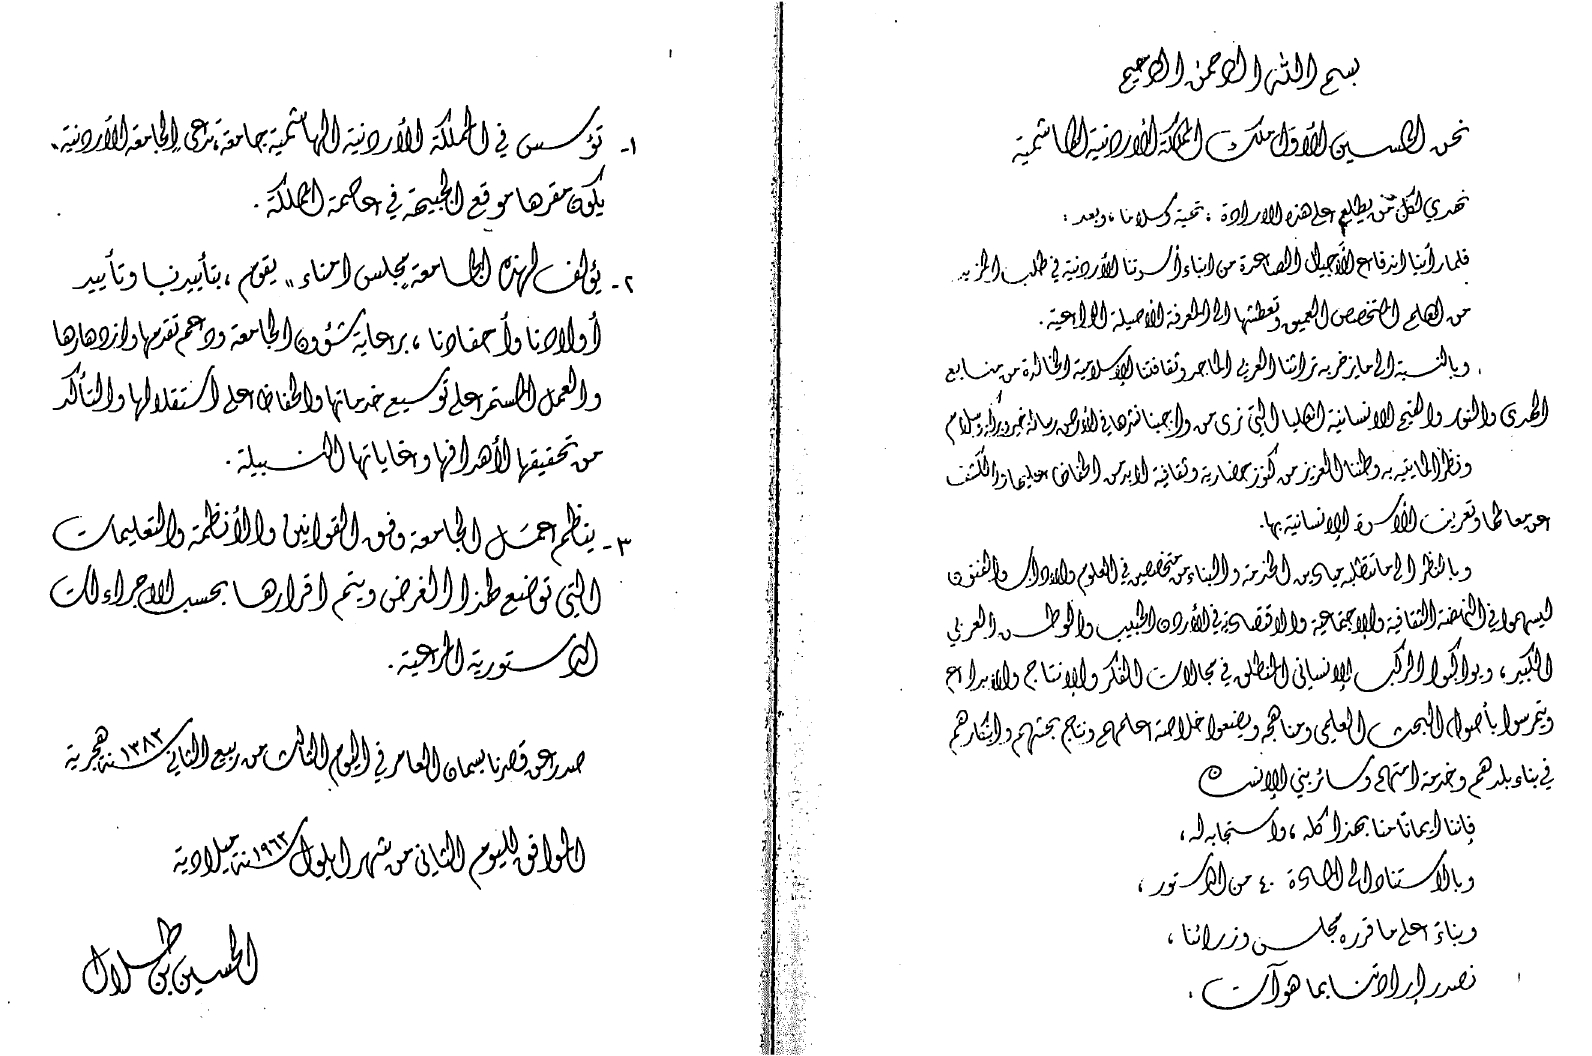 بسم الله الرحمن الرحيم
نحن الحسين الأول ملك المملكة الأردنية الهاشمية
نهدي لكل من يطلع على هذه الارادة ، تحية وسلاما ، وبعد :
فلما رأينا اندفاع الأجيال الصاعدة من ابناء أسرتنا الأردنية في طلب المزيد
من العلم المتخصص العميق وتعطشها الى المعرفة الأصيلة الواعية .
وبالنسبة الى ما يزخر به تراثنا العربي الماجد وثقافتنا الإسلامية الخالدة من منابع
الهدى والنور والقيم الانسانية العليا التي نرى من واجبنا نشرها في الأرض رسالة خير وبركة وسلام
ونظرا لما يتيه به وطننا العزيز من كنوز حضارية وثقافية لابد من الحفاظ عليها والكشف
عن معالمها وتعريف الأسرة الإنسانية بها .
وبالنظر الى ما تتطلبه ميادين الخدمة والبناء من متخصصين في العلوم والآداب والفنون
ليسهموا في النهضة الثقافية والاجتماعية والاقتصادية في الأردن الحبيب والوطن العربي
الكبير ، ويواكبوا الركب الإنساني المنطلق في مجالات الفكر والإنتاج والابداع
ويتمرسوا بأصول البحث العلمي ومناهجه ويضعوا خلاصة علمهم ونتاج بحثهم وابتكارهم
في بناء بلدهم وخدمة امتهم وسائر بني الإنسان
فإننا ايمانا منا بهذا كله ، واستجابة له ،
وبالاستناد الى المادة ٤٠ من الدستور ،
وبناء على ما قرره مجلس وزرائنا ،
نصدر إرادتنا بما هو آت :
١- تؤسس في المملكة الأردنية الهاشمية جامعة ، تدعى "الجامعة الأردنية"
يكون مقرها موقع الجبيهة في عاصمة المملكة .
٢- يؤلف لهذه الجامعة "مجلس امناء" يقوم ، بتأييدنا وتأييد
أولادنا وأحفادنا ، برعاية شؤون الجامعة ودعم تقدمها وازدهارها
والعمل المستمر على توسيع خدماتها والحفاظ على استقلالها والتأكد
من تحقيقها لأهدافها وغاياتها النبيلة .
٣- ينظم عمل الجامعة وفق القوانين والأنظمة والتعليمات
التي توضع لهذا الغرض ويتم اقرارها بحسب الاجراءات
الدستورية المرعية .
صدر عن قصرنا بسمان العامر في اليوم الثالث من ربيع الثاني سنة ١٣٨٢ هجرية
الموافق لليوم الثاني من شهر ايلول سنة ١٩٦٢ ميلادية
الحسين بن طلال